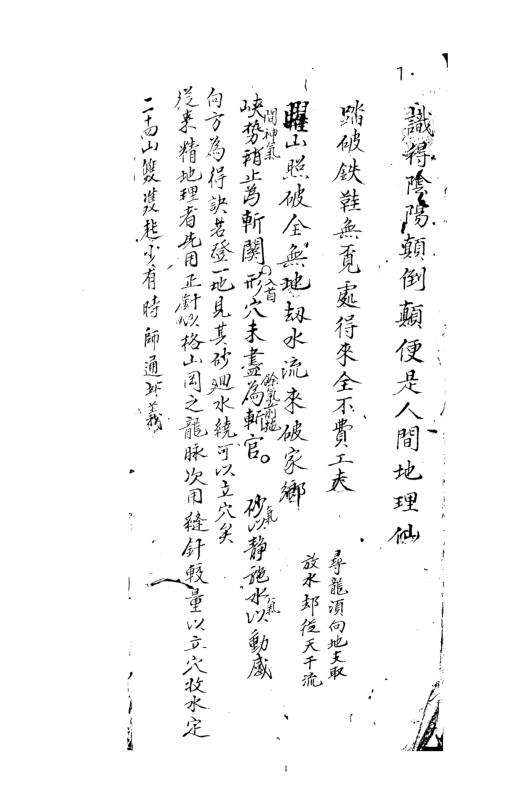 7.
識得陰陽顛倒顛便是人間地理仙
踏破鉄鞋無覓處得來全不費工夫
尋龍湏向地支取
放水却從天干流
曜山照破全無地刼水流來破家鄉
間神氣
入首
餘氣
氣
氣
峽勢稍止為斬関形穴未盡為斬官。砂以静施水以動感
向方為得訣若登一地見其砂廻水繞可以立穴矣
從來精地理者先用正針以格山岡之龍脉次用縫針較量以立穴收水定
二十四山雙雙起少有時師通此義
1